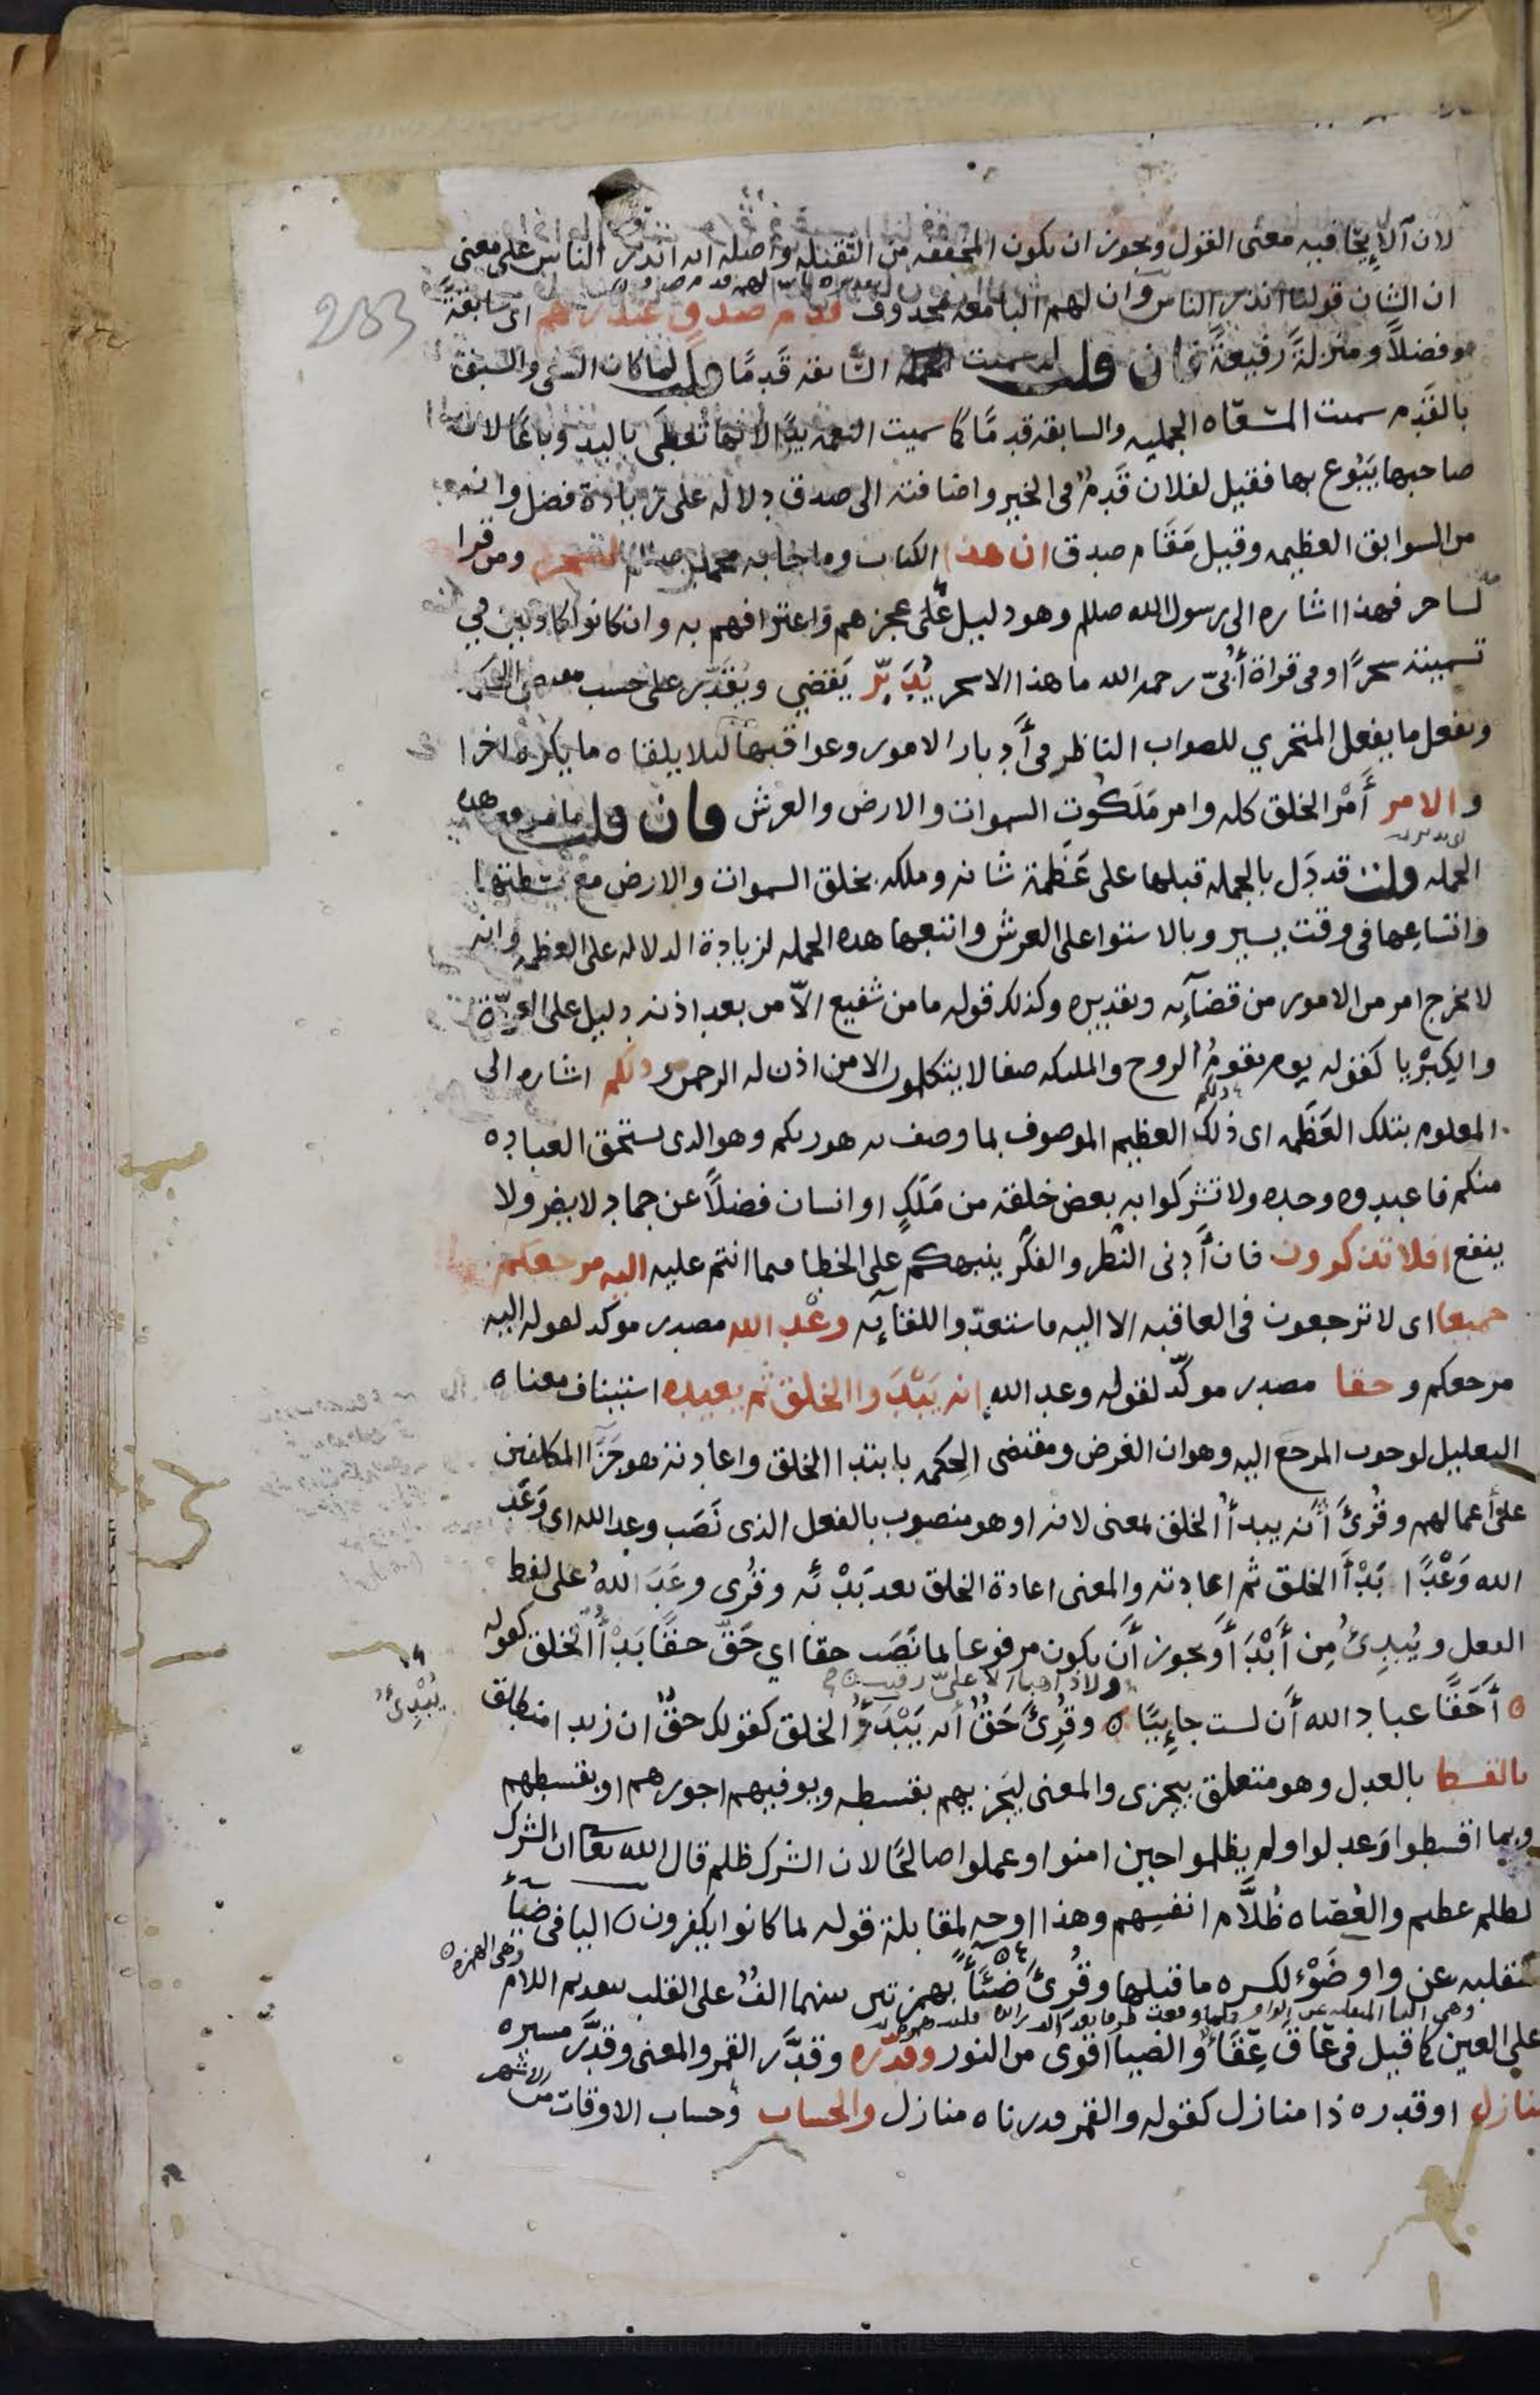 لان الايحا فيه معنى القول ويجوز ان يكون المخففه من الثقيله واصله انه انذر الناس على معنى
ان الشان قولنا انذر الناس وان لهم البا معه محذوف قدم صدق عند ربهم اى سابقةً
وفضلاً ومنزلةً رفيعةً فان قلت لم سميت السابقه قَدمًا قلت لما كان السعى والسبق
بالقَدَم سميت المسعاه الجميله والسابقه قدمًا كما سميت النعمه يدًا لانها تعطَى باليد وباعًا لان
صاحبها يَبُوع بها فقيل لفلان قَدمٌ فى الخير واضافته الى صدق دلالة على زيادة فضل وانه
من السوابق العظيمه وقيل مَقَام صدق ان هذا الكتاب وما جا به محمد لسحر ومن قرا
لساحر فهذا اشاره الى رسول الله صللم وهو دليل عَلَى عجزهم واعترافهم به وان كانوا كاذبين في
تسميته سحرًا وفى قراة أُبَىّ رحمه الله ما هذا الا سحر يُدَبِّر يَقضِي ويُقَدّر على حسب
ويفعل ما يفعل المتحري للصواب الناظر فى أَدبار الامور وعواقبها ليلا يلقاه ما يكره اخرا
والامر أَمْر الخلق كله وامر مَلَكُوتِ السموات والارض والعرش فان قلت ما موقع هذه
الجمله قلت قد دَل بالجمله قبلها على عَظَمة شانه وملكه بخلق السموات والارض مع بسطتها
واتساعِها فى وقت يسير وبالاستوا على العرش واتبعها هذه الجمله لزيادة الدلاله على العظمه وانه
لا يخرج امر من الامور من قضآيه وتقديره وكذلك قوله ما من شفيع الاّ من بعد اذنه دليل على العِزّة
والكِبْرِيا كقوله يوم يقومُ الروح والمليكه صفا لا يتكلمون الا من اذن له الرحمن ذلكم اشاره الى
المعلوم بتلك العَظَمه اى ذلك العظيم الموصوف بما وصف به هو ربكم وهو الذى يستحق العباده
منكم فاعبدوه وحده ولا تشركوا به بعض خلقه من مَلَكٍ او انسان فضلاً عن جماد لا يضر ولا
ينفع افلا تذكرون فان أَدنى النظر والفكر ينبهكم على الخطا فيما انتم عليه اليه مرجعكم
جميعا اى لا ترجعون فى العاقبه الا اليه فاستعدّوا للقآيه وعْد الله مصدر موكد لقوله اليه
مرجعكم و حقا مصدر موكّد لقوله وعد الله انه يَبْدَوا الخلق ثم يعيده استيناف معناه
التعليل لوجوب المرجع اليه وهو ان الغرض ومقتضى الحكمه بابتدا الخلق واعادته هو جَزَا المكلفين
على أعمالهم وقُرِئَ أَنه يبدأُ الخلق بمعنى لانه او هو منصوب بالفعل الذى نَصَب وعد الله اى وَعَد
الله وَعْدًا بَدْأَ الخلق ثم اعادته والمعنى اعادة الخلق بعد بَدْئه وقُرى وعَدَ اللهُ على لفظ
الفعل ويُبدِئُ مِن أَبْدَأَ ويجوز أَن يكون مرفوعا بما نَصَب حقا اي حَقّ حقًا بَدْأُ الخلق كقوله
أَحَقًّا عباد الله أَن لست جايِيًا ولا ذاهبا الا علىّ رقيب وقُرِئَ حَقٌّ أنه يَبْدَؤُ الخلق كقولك حقٌّ ان زيدا منطلق
يُبْدِئُ
بالقسط بالعدل وهو متعلق بيجزى والمعنى ليَجزيهم بقسطه ويوفيهم اجورهم او بقسطهم
وبما اقسطوا وَعدلوا ولم يظلموا حين امنوا وعملوا صالحًا لان الشرك ظلم قال الله تعا ان الشرك
لظلم عظيم والعُصَاه ظُلاَّم انفسِهم وهذا اوجه لمقابلة قوله بما كانوا يكفرون اليا فى ضيآء
منقلبه عن واو ضَوْء لكسره ما قبلها وقُرِئَ ضِئَآءً بهمزتين بينهما الفٌ على القلب بتقديم اللام
وهى الهمزه
على العين كما قيل فى عَاقَ عِقَاءٌ والضيا اقوى من النور وقدّره وقدَّر القمر والمعنى وقدَّر مسيره
منازل او قدره ذا منازل كقوله والقمر قدرناه منازل والحساب وحساب الاوقات من الاشهر